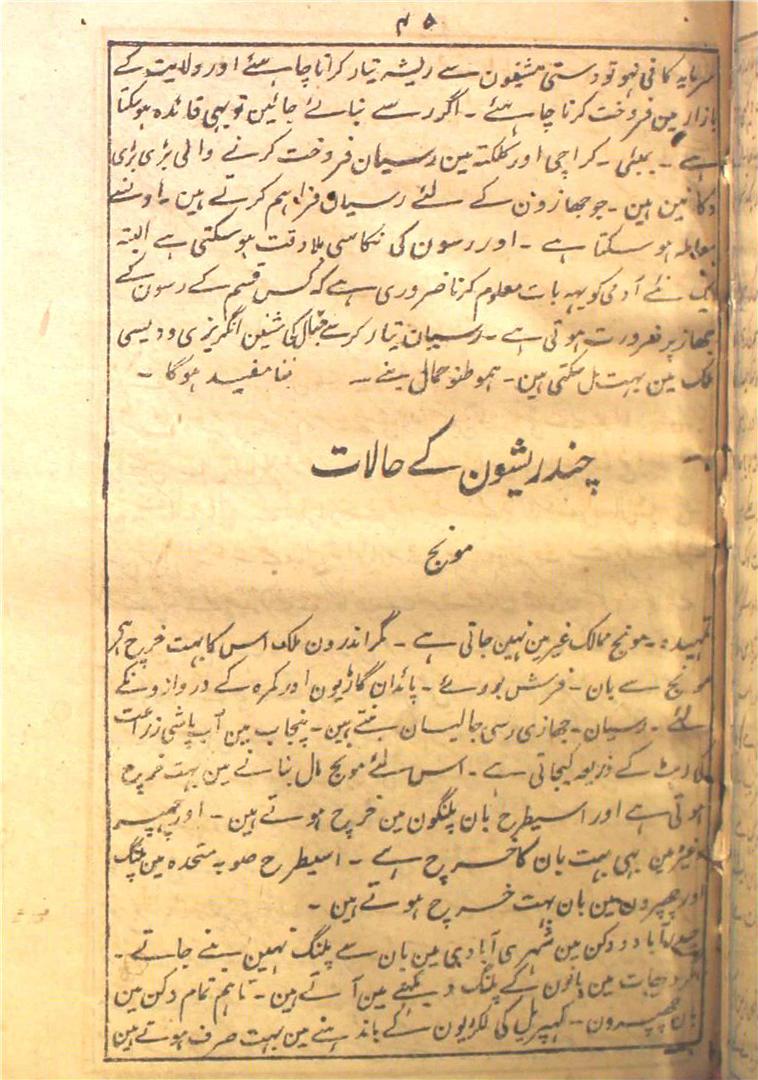 ۴۵
سرمایہ کافی نہو تو دستی مشینون سے ریشہ تیار کرانا چاہئے اور ولایت کے
بازار مین فروخت کرنا چاہئے ۔ اگر رسے بنائے جائین تو بھی فائدہ ہوسکتا
ہے ۔ بمبئی ۔ کراچی اور کلکتہ مین رسیان فروخت کرنے والی بڑی بڑی
دکانین ہین ۔ جو جہازون کے لئے رسیان فراہم کرتے ہین ۔ اونسے
معاملہ ہو سکتا ہے ۔ اور رسون کی نکاسی بلا دقت ہو سکتی ہے البتہ
ایک نئے آدمی کو یہہ بات معلوم کرنا ضروری ہے کہ کس قسم کے رسون کے
جہاز پر ضرورت ہوتی ہے ۔ رسیان تیار کرنے کی مشین انگریزی و دیسی
ملک مین بہت مل سکتی ہین ۔ ہموطنو مفید ہوگا ۔
چند ریشون کے حالات
مونج
تمہید :۔ مونج ممالک غیر مین نہین جاتی ہے ۔ مگر اندرون ملک اس کا بہت خرچ ہے
مونج سے بان ۔ فرش بورئے ۔ پائدان گاڑیون اور کمرہ کے دروازونکے
لئے ۔ رسیان ۔ جہازی رسی جالیان بنتے ہین ۔ پنجاب مین آب پاشی زراعت
کے ذریعہ کیجاتی ہے ۔ اس لئے مونج مال بنانے مین بہت خرچ
ہوتی ہے اور اسیطرح بان پلنگون مین خرچ ہوتے ہین ۔ اور چھپر
وغیرہ مین بہی بہت بان کا خرچ ہے ۔ اسیطرح صوبہ متحدہ مین پلنگ
اور چھپرون مین بان بہت خرچ ہوتے ہین ۔
حیدرآباد دکن مین شہری آبادی مین بان سے پلنگ نہین بنے جاتے ۔
مگر دیہات مین بانون کے پلنگ دیکھنے مین آتے ہین ۔ تاہم تمام دکن مین
بان چھپرون ۔ کھپریل کی لکڑیون کے باندہنے مین بہت صرف ہوتے ہین